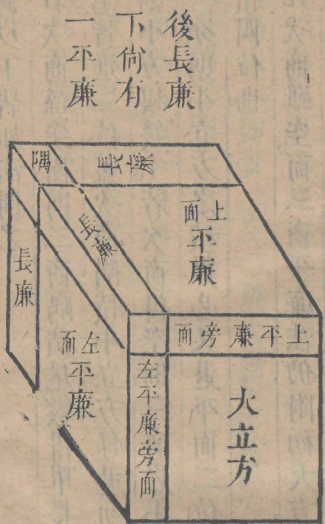 後長廉
下尚有
一平廉
隅
長廉
長廉
長廉
上面
平廉
左面
平廉
上平廉旁面
左平廉旁面
大立方